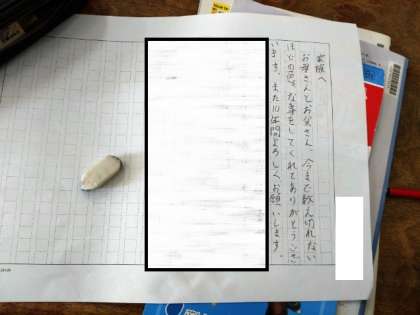 家族へ
お母さんとお父さん、今まで数え切れない
ほどの色々な事をしてくれてありがとうござ
います。また10年間よろしくお願いします。